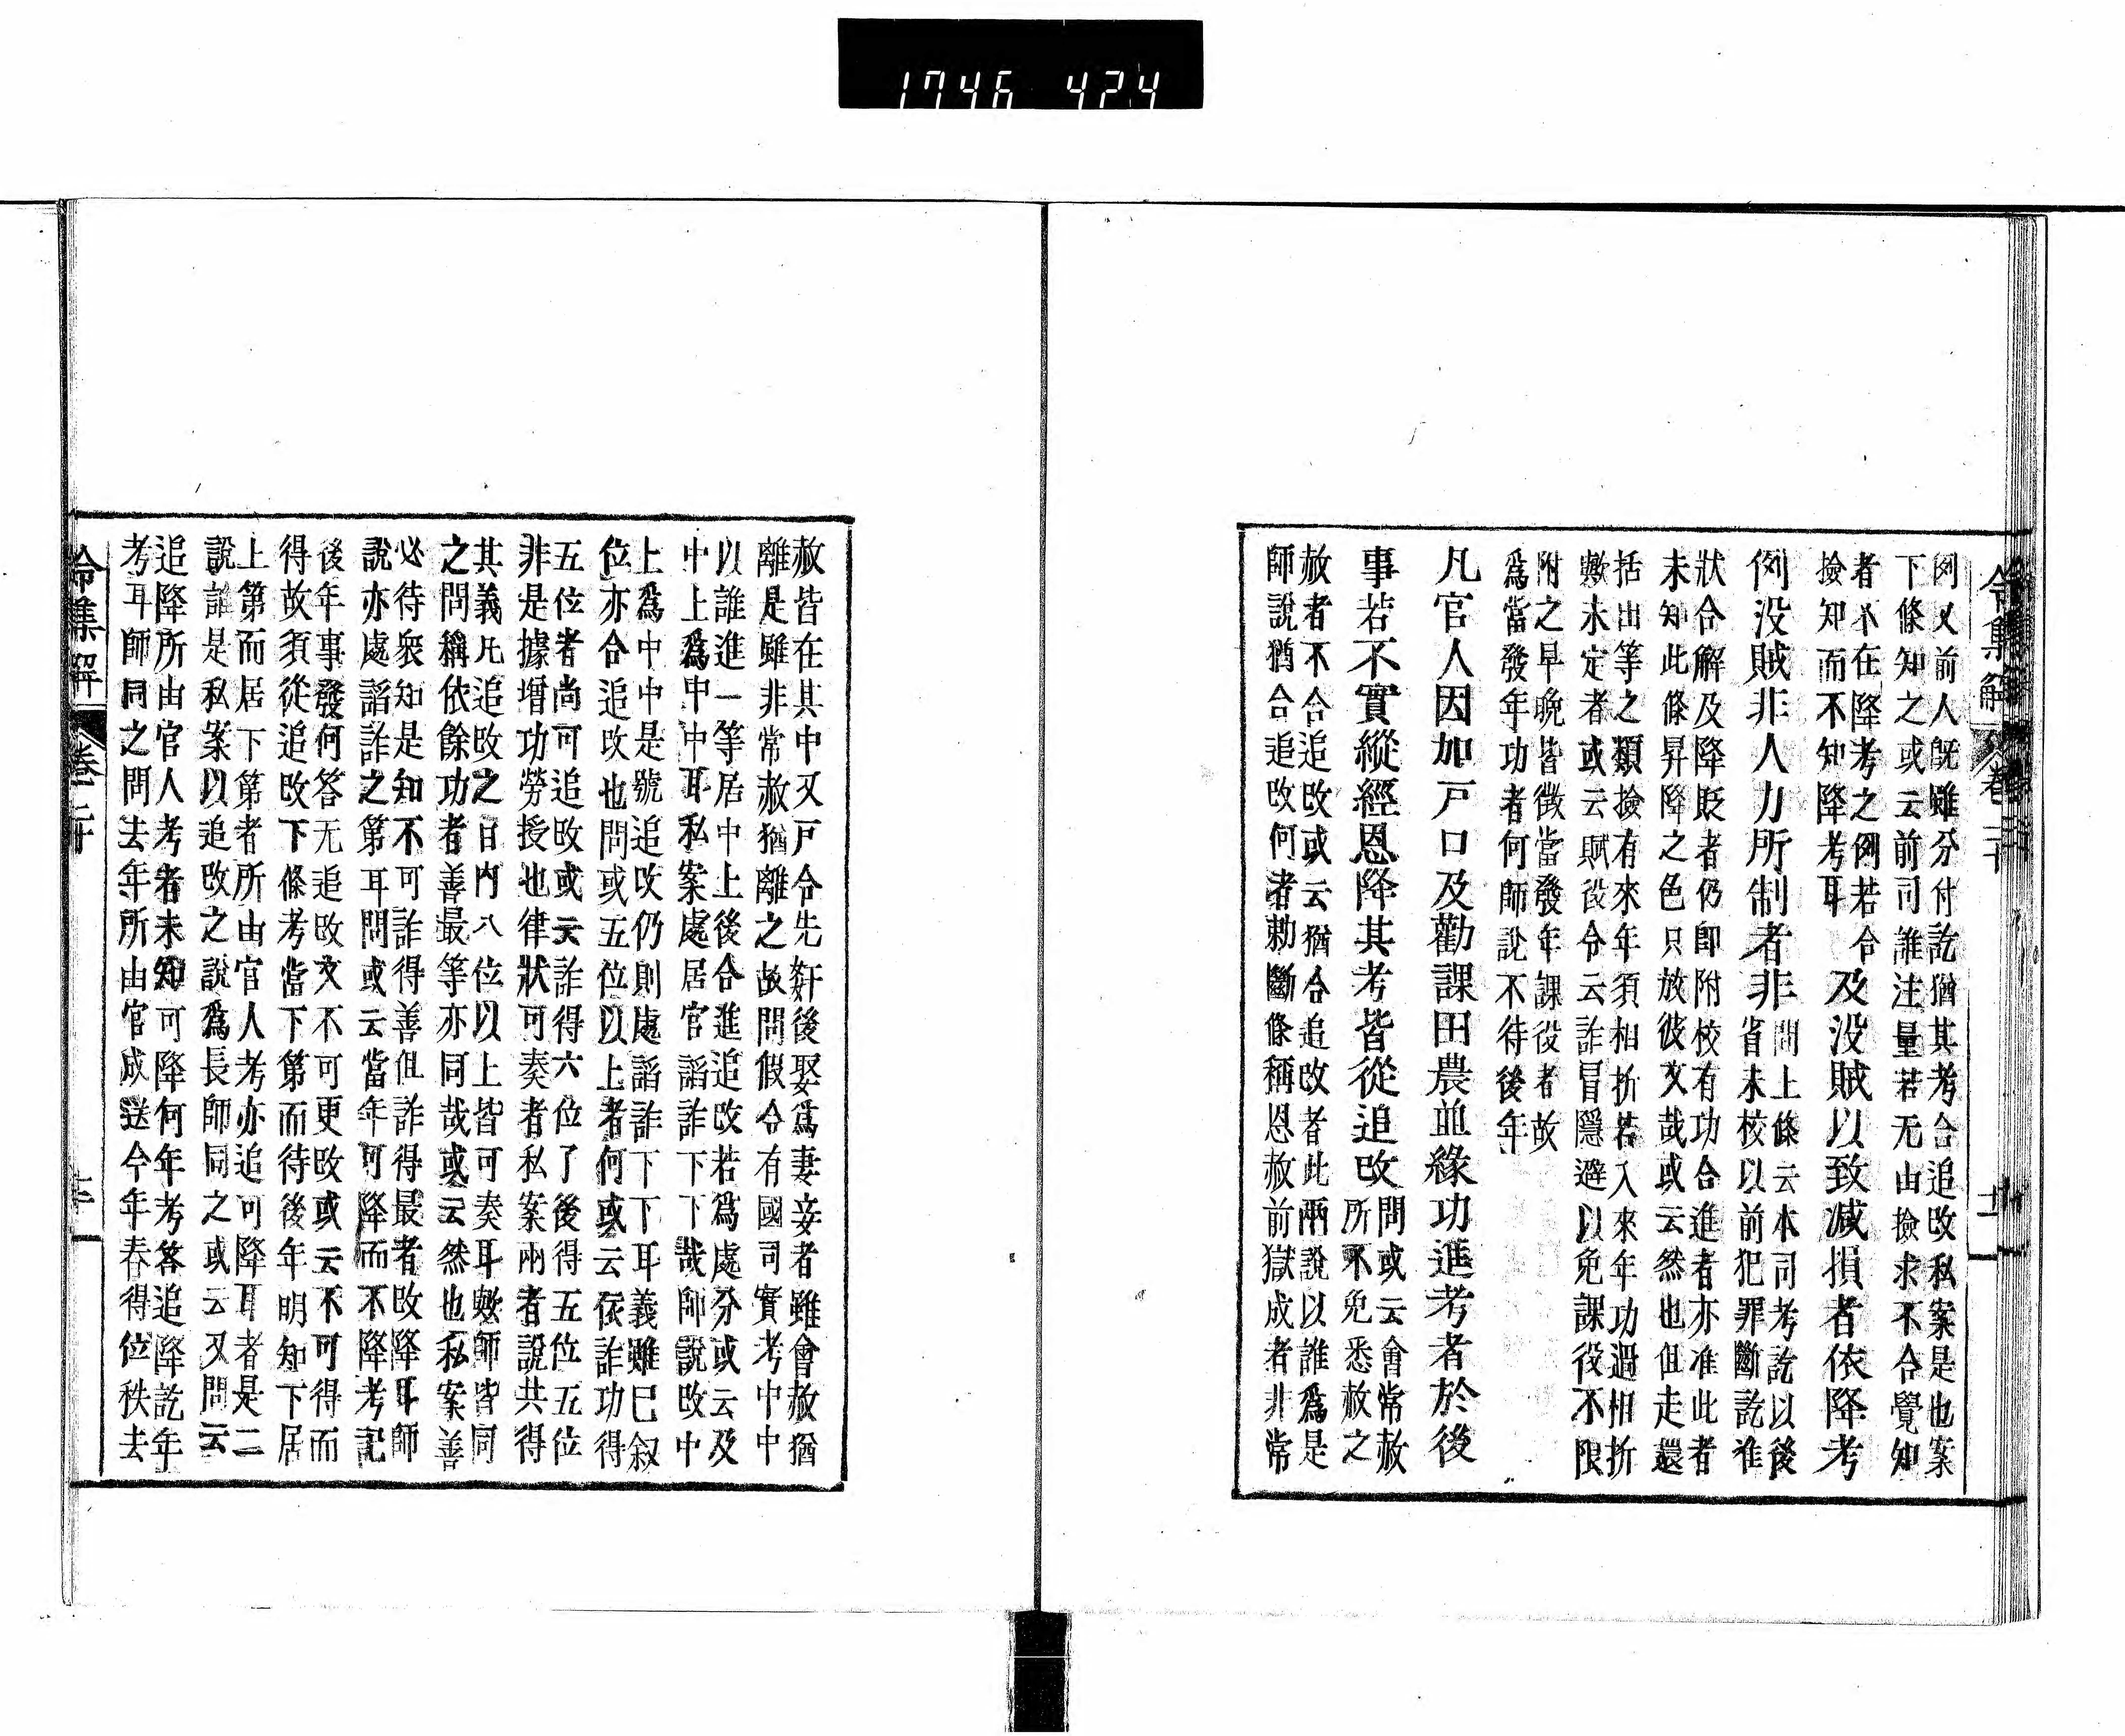 1746 424
令集解 卷二十
例又前人既雖分付訖猶其考合追改私案是也案
下條知之或云前司誰注量若无由撿求不合覺知
者不在降考之例若合
撿知而不知降考耳
及没賊以致减損者依降考
例没賊非人力所制者非
問上條云本司考訖以後
省未校以前犯罪斷訖准
狀合解及降貶者仍即附校有功合進者亦准此者
未知此條昇降之色只放彼文哉或云然也但走還
括出等之類撿有來年須相折若入來年功過相折
歟未定者或云賦役令云詐冐隱避以免課役不限
附之早晩皆徴當發年課役者故
爲當發年功者何師説不待後年
凡官人因加戸口及勸課田農並緣功進考者於後
事若不實縱經恩降其考皆從追改
問或云會常赦
所不免悉赦之
赦者不合追改或云猶合追改者此兩説以誰爲是
師説猶合追改何者勅斷條稱恩赦前獄成者非常
赦皆在其中又戸令先奸後娶爲妻妾者雖會赦猶
離是雖非常赦猶離之故問假令有國司實考中中
以誰進一等居中上後合進追改若爲處分或云及
中上爲中中耳私案處居官諂詐下下哉師説改中
上爲中中是號追改仍則處諂詐下下耳義雖已叙
位亦合追改也問或五位以上者何或云依詐功得
五位者尚可追改或云詐得六位了後得五位五位
非是據增功勞授也律狀可奏者私案兩者說共得
其義凡追改之日内八位以上皆可奏耳歟師皆同
之問稱依餘功者善最等亦同哉或云然也私案善
必待衆知是知不可詐得善但詐得最者改降耳師
説亦處諂詐之第耳問或云當年可降而不降考記
後年事發何答无追改文不可更改或云不可得而
得故須從追改下條考當下第而待後年明知下居
上第而居下第者所由官人考亦追可降耳者是二
說誰是私案以追改之說爲長師同之或云又問云
追降所由官人考者未知可降何年考答追降訖年
考耳師同之問去年所由官成送今年春得位秩去
令集解 卷二十